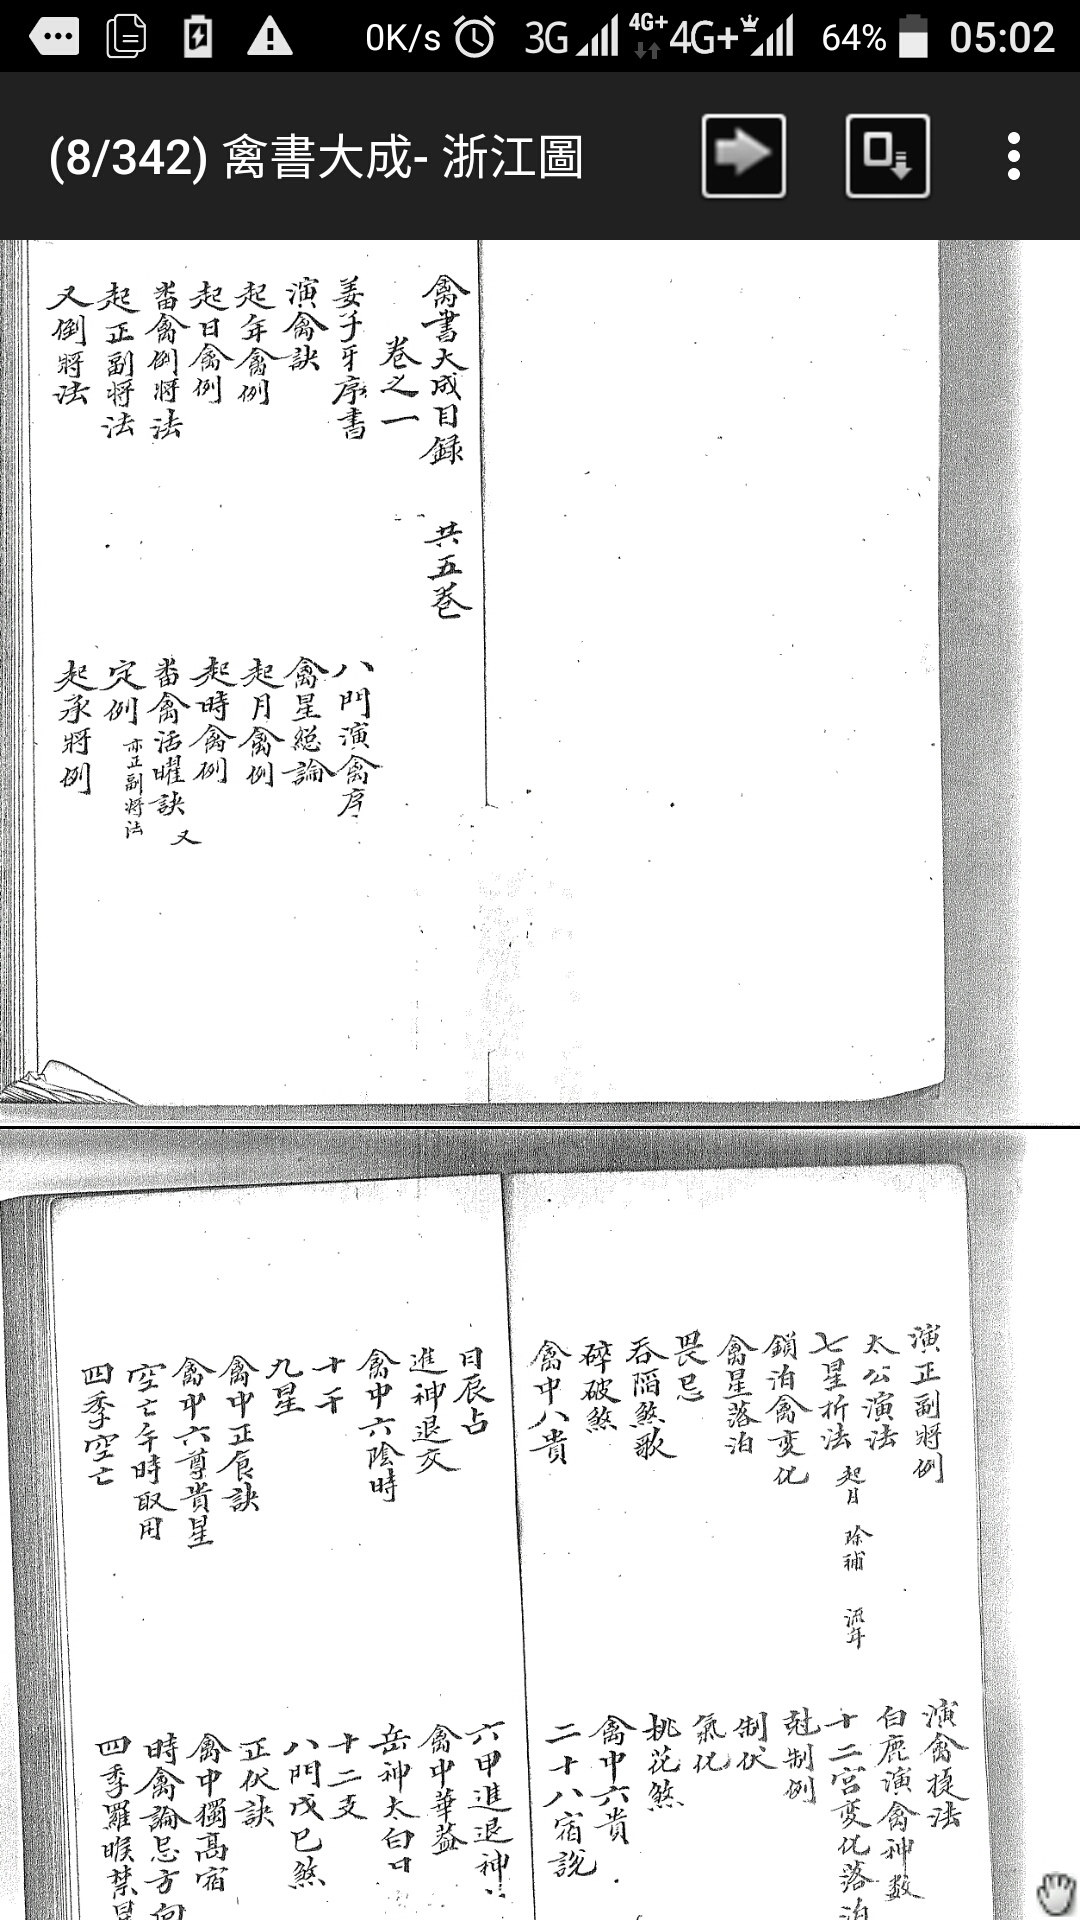 0K/s 3G 4G+ 4G+ 64% 05:02
(8/342) 禽書大成- 浙江圖
禽書大成目録 共五卷
卷之一
姜子牙序書 八門演禽序
演禽訣 禽星總論
起年禽例 起月禽例
起日禽例 起時禽例
畨禽例將法 畨禽活曜訣 又
起正副將法 定例 亦正副將法
又倒將法 起承將例
演正副將例 演禽捷法
太公演法 白鹿演禽神数
七星折法 起日 除補 流年 十二宮变化落泊
鎖泊禽变化 尅制例
禽星落泊 制伏
畏忌 氣化
吞陷煞歌 桃花煞
碎破煞 禽中六貴
禽中八貴 二十八宿説
日辰占 六甲進退神
進神退交 禽中華益
禽中六陰時 岳神太白日
十干 十二支
九星 八門戊巳煞
禽中正食訣 正伏訣
禽中六尊貴星 禽中獨高宿
空亡午時取用 時禽論忌方向
四季空亡 四季羅睺禁星